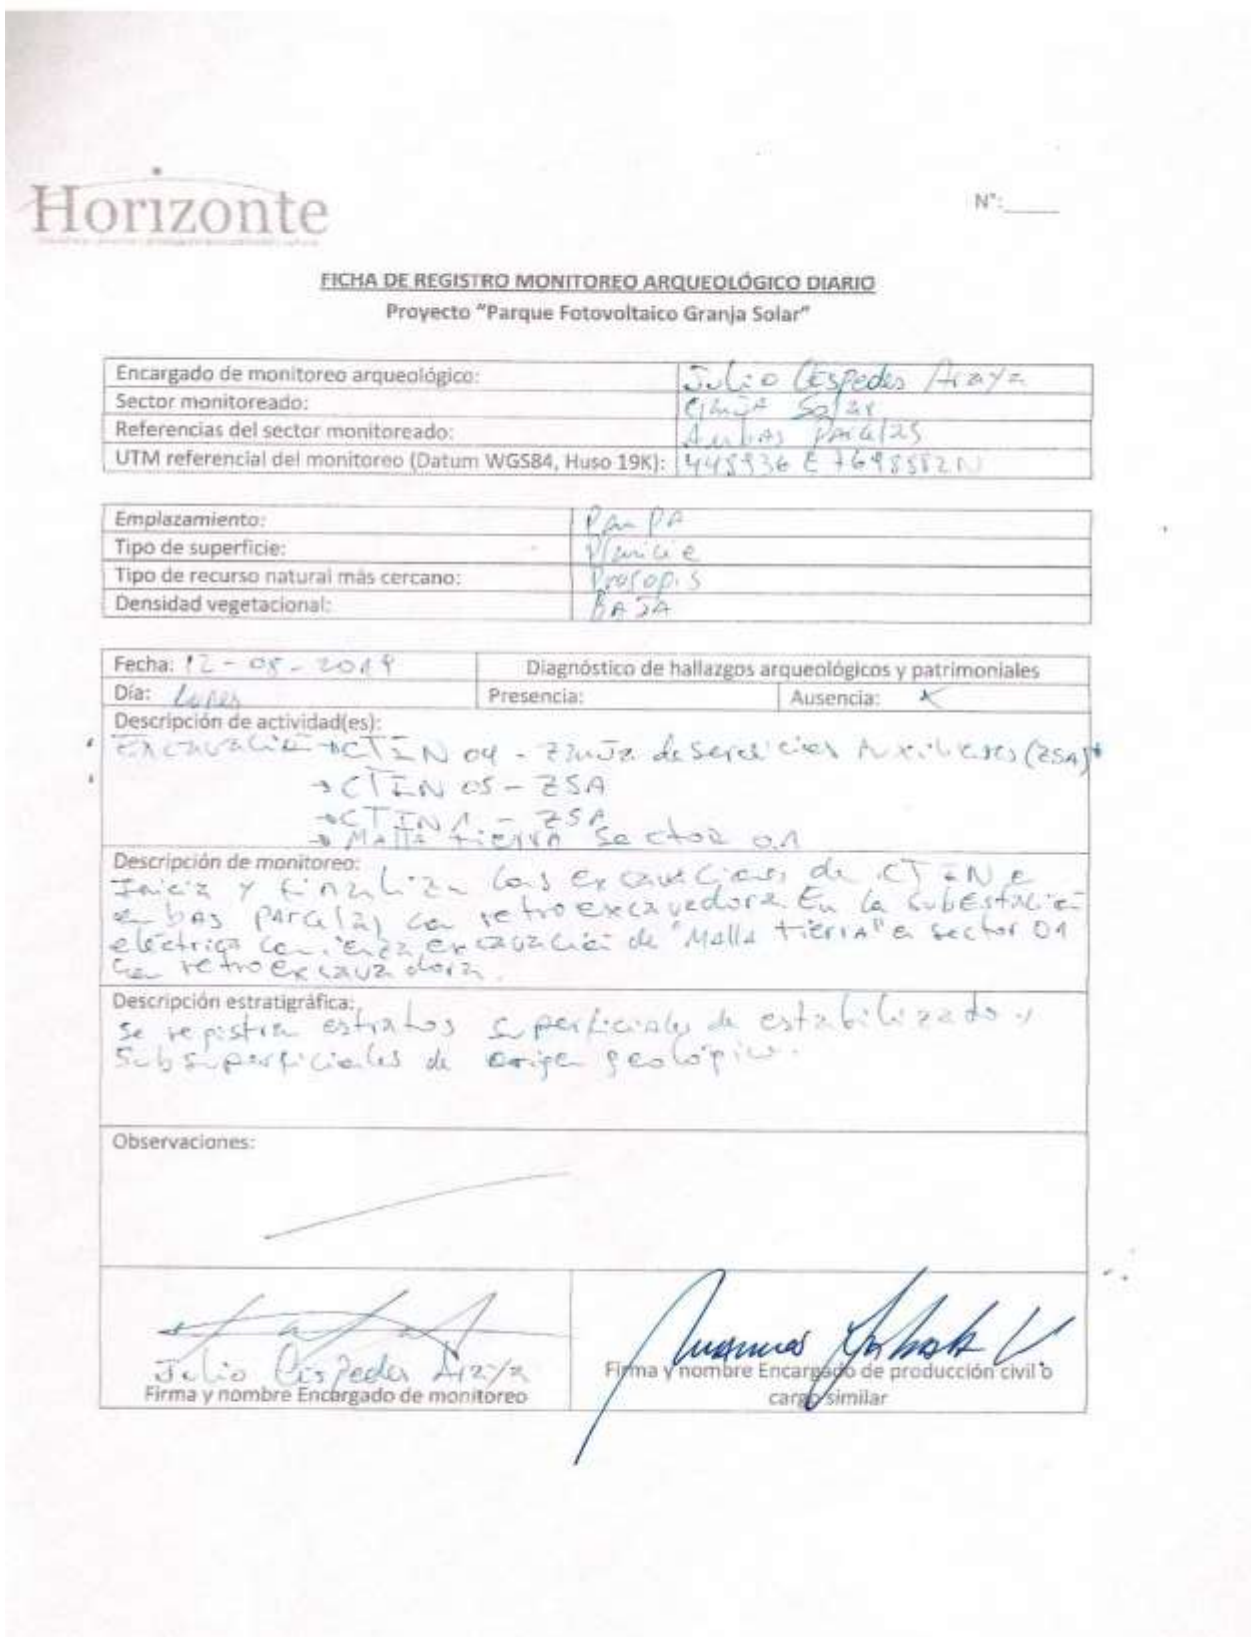 Horizonte
N°:_____
FICHA DE REGISTRO MONITOREO ARQUEOLÓGICO DIARIO
Proyecto "Parque Fotovoltaico Granja Solar"
Encargado de monitoreo arqueológico: Julio Céspedes Araya
Sector monitoreado: Granja Solar
Referencias del sector monitoreado: Ambas parcelas
UTM referencial del monitoreo (Datum WGS84, Huso 19K): 448936 E 7698582 N
Emplazamiento: Pampa
Tipo de superficie: Planicie
Tipo de recurso natural más cercano: Prosopis
Densidad vegetacional: BAJA
Fecha: 12-08-2019 Diagnóstico de hallazgos arqueológicos y patrimoniales
Día: Lunes Presencia: Ausencia: X
Descripción de actividad(es):
Excavación → CTIN 04 - Zanja de Servicios Auxiliares (ZSA)
→ CTIN 05 - ZSA
→ CTIN 1 - ZSA
→ Malla tierra Sector 01
Descripción de monitoreo:
Inicia y finaliza las excavaciones de CTIN e
ambas parcelas con retroexcavadora. En la subestación
eléctrica comienza excavación de "Malla tierra" en sector 01
con retroexcavadora.
Descripción estratigráfica:
Se registra estratos superficiales de estabilizado y
subsuperficiales de origen geológico.
Observaciones:
Julio Céspedes Araya
Firma y nombre Encargado de monitoreo
Firma y nombre Encargado de producción civil o
cargo similar